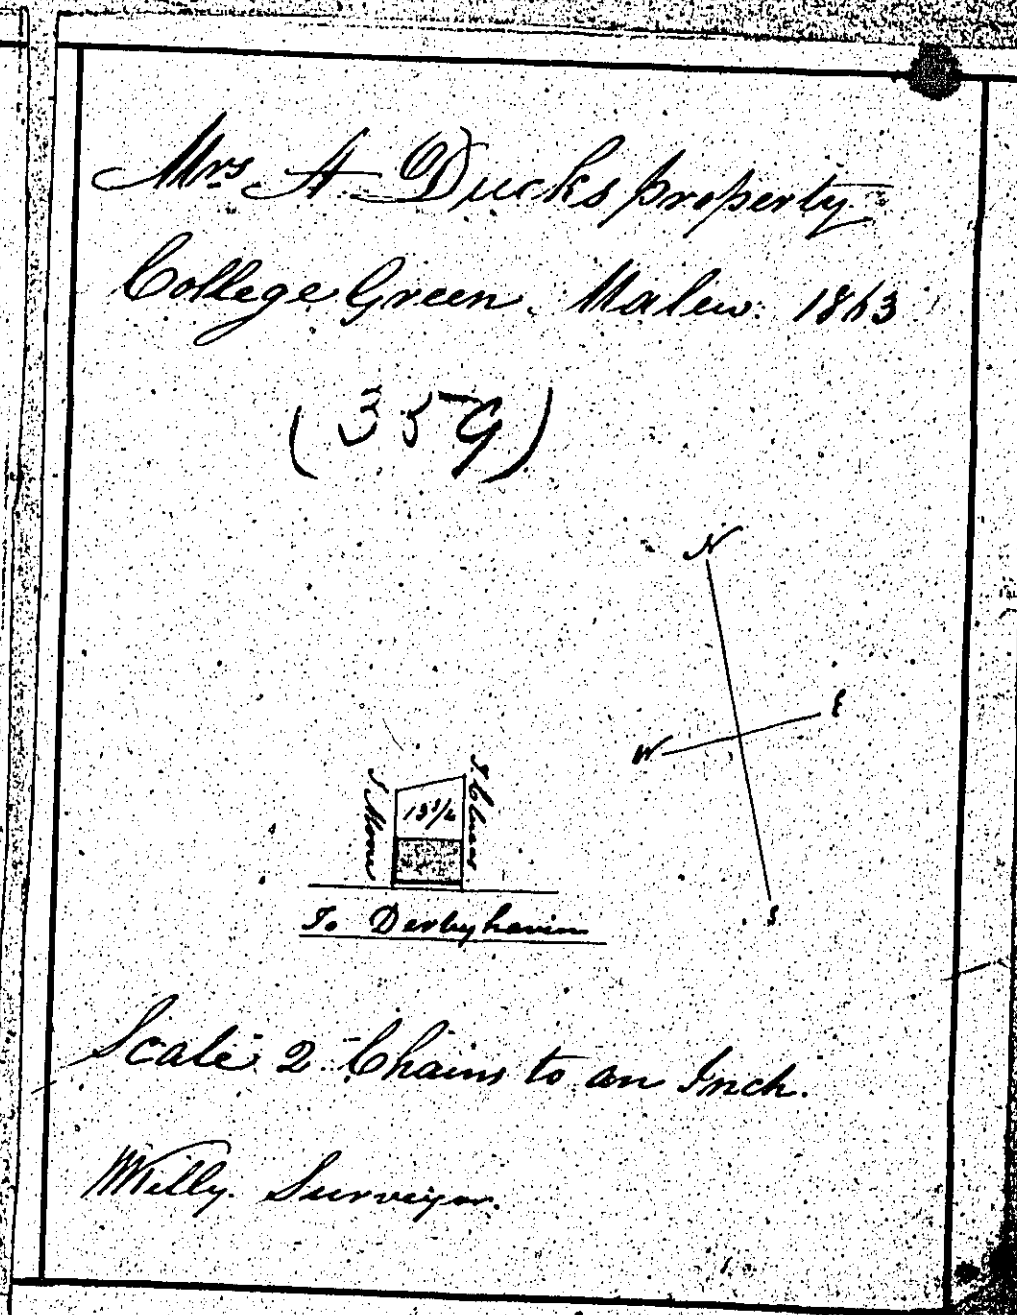 Mrs A. Ducks property
College Green. Malew. 1863
(35G)
N
E
W
S
13 1/2
To Derbyhaven
Scale 2 Chains to an Inch.
Surveyor.